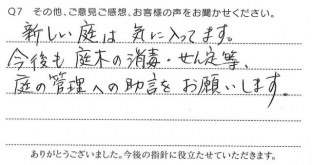 Q7 その他、ご意見ご感想、お客様の声をお聞かせください。
新しい庭は気に入ってます。
今後も庭木の消毒・せん定等、
庭の管理への助言をお願いします。
ありがとうございました。今後の指針に役立たせていただきます。